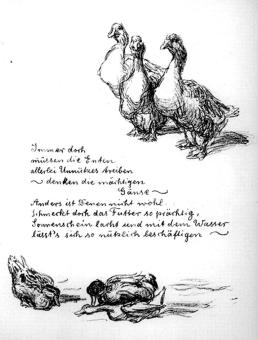 Immer doch
müssen die Enten
allerlei Unnützes treiben
~ denken die mächtigen
Gänse ~
Anders ist Denen nicht wohl.
Schmeckt doch das Futter so prächtig,
Sonnenschein lacht und mit dem Wasser
lässt's sich so nützlich beschäftigen ~